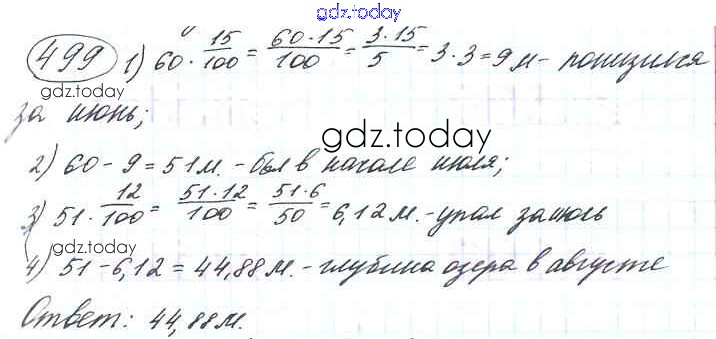 gdz.today
499 1) 60 · 15/100 = 60·15/100 = 3·15/5 = 3·3=9 м - понизился
gdz.today
за июнь;
gdz.today
2) 60 - 9 = 51 м. - был в начале июля;
3) 51 · 12/100 = 51·12/100 = 51·6/50 = 6,12 м. - упал за июль
gdz.today
4) 51 - 6,12 = 44,88 м. - глубина озера в августе
Ответ: 44,88 м.